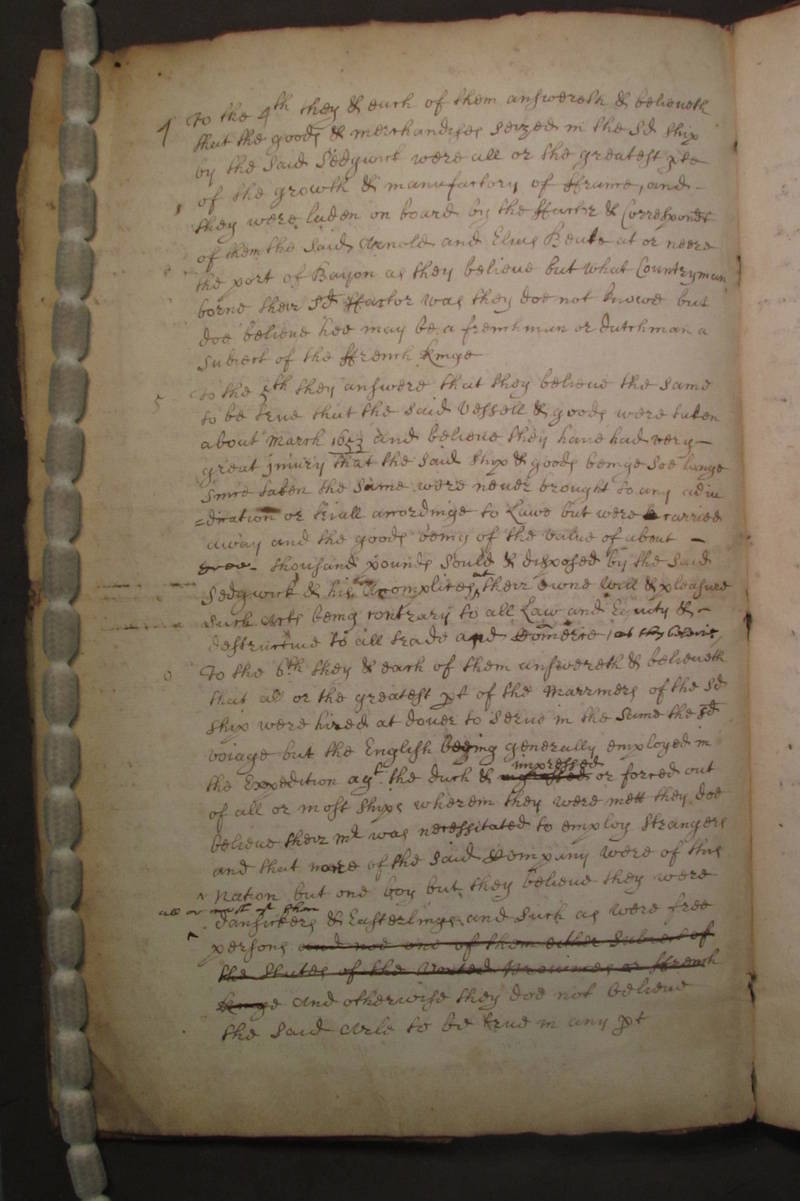 4 To the 4th they & each of them answereth & believeth
that the goods & merchandises seized in the sd ship
by the said Sedgwick were all or the greatest pte
of the growth & manufactory of ffrance, and -
they were laden on board by the ffactor & Correspondt
of them the said Arnold and Elias Beake at or neere
the port of Bayon as they believe but what Countryman
borne their sd ffactor was they doe not knowe but
doe believe hee may be a frenchman or dutchman a
subiect of the ffrench kinge
5 To the 5th they answere that they believe the same
to be true that the said vessell & goods were taken
about March 1653 and believe they have had very -
great iniury that the said ship & goods beinge soe longe
since taken the same were never brought to any adiu
=dication or triall accordinge to Lawe but were carried
away and the goods being of the value of about -
thousand pounds sould & disposed by the said
Sedgwick & his Accomplices at their owne will & pleasure
such Acts being contrary to all Law and Equity & -
destructive to all trade and Comerce
6 To the 6th they & each of them answereth & believeth
that all or the greatest pt of the Marriners of the sd
ship were hired at dover to serve in the same the sd
voiage but the English being generally employed in
the Expedition agt the duch & impressed or forced out
of all or most ships wherein they were mett they doe
believe their mr was necessitated to employ strangers
and that none of the said Company were of this
Nation but one boy but they believe they were
all or most of them
dansickers & Easterlings and such as were free
persons and not one of them either subiect of
the States of the United Provinces or ffrench
kinge and otherwise they doe not believe
the said Arle to be true in any pt